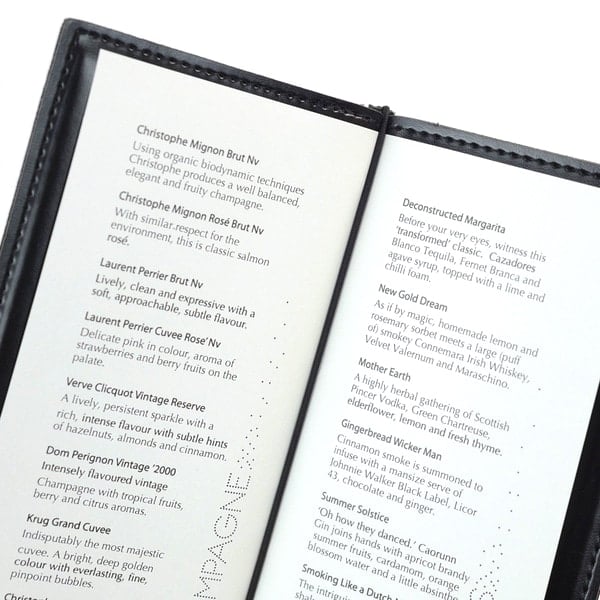 Christophe Mignon Brut Nv
Using organic biodynamic techniques
Christophe produces a well balanced,
elegant and fruity champagne.
Christophe Mignon Rosé Brut Nv
With similar respect for the
environment, this is classic salmon
rosé.
Laurent Perrier Brut Nv
Lively, clean and expressive with a
soft, approachable, subtle flavour.
Laurent Perrier Cuvee Rose' Nv
Delicate pink in colour, aroma of
strawberries and berry fruits on the
palate.
Verve Clicquot Vintage Reserve
A lively, persistent sparkle with a
rich, intense flavour with subtle hints
of hazelnuts, almonds and cinnamon.
Dom Perignon Vintage '2000
Intensely flavoured vintage
Champagne with tropical fruits,
berry and citrus aromas.
Krug Grand Cuvee
Indisputably the most majestic
cuvee. A bright, deep golden
colour with everlasting, fine,
pinpoint bubbles.
MPAGNE
Deconstructed Margarita
Before your very eyes, witness this
'transformed' classic. Cazadores
Blanco Tequila, Fernet Branca and
agave syrup, topped with a lime and
chilli foam.
New Gold Dream
As if by magic, homemade lemon and
rosemary sorbet meets a large (puff
of) smokey Connemara Irish Whiskey,
Velvet Valernum and Maraschino.
Mother Earth
A highly herbal gathering of Scottish
Pincer Vodka, Green Chartreuse,
elderflower, lemon and fresh thyme.
Gingerbread Wicker Man
Cinnamon smoke is summoned to
infuse with a mansize serve of
Johnnie Walker Black Label, Licor
43, chocolate and ginger.
Summer Solstice
'Oh how they danced,' Caorunn
Gin joins hands with apricot brandy
summer fruits, cardamom, orange
blossom water and a little absinthe
Smoking Like a Dutch
The intriguin